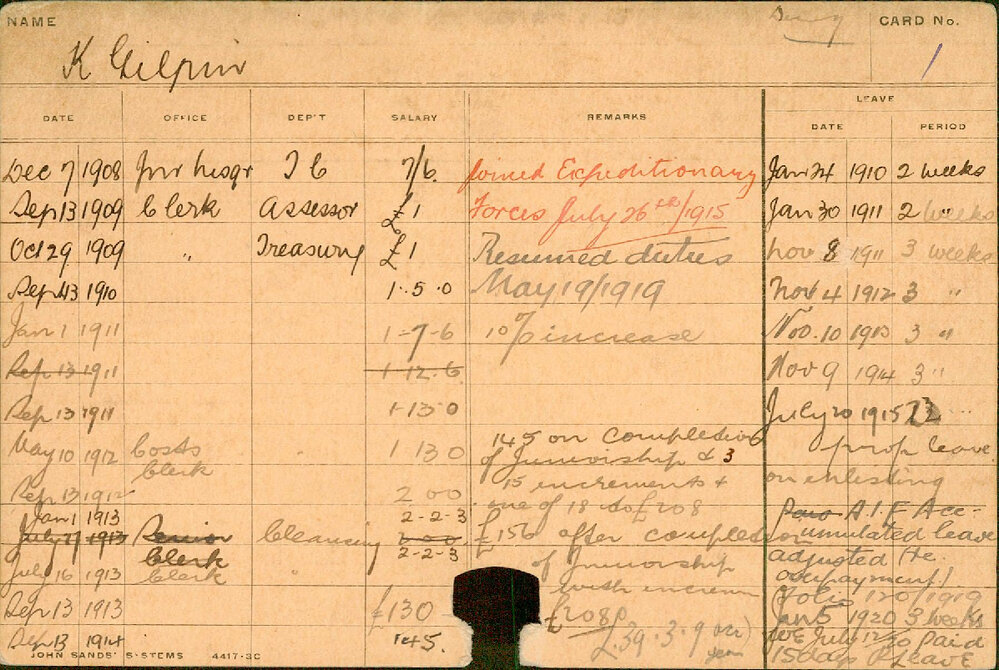 NAME
K Gilpin
CARD No.
1
DATE OFFICE DEP'T SALARY REMARKS LEAVE
DATE PERIOD
Dec 7 1908 Jnr Messgr T C 7/6. Joined Expeditionary Jan 24 1910 2 weeks
Sep 13 1909 Clerk Assessor £1 Forces July 26th/1915 Jan 30 1911 2 weeks
Oct 29 1909 " Treasury £1 Resumed duties Nov 8 1911 3 weeks
Sept 13 1910 1.5.0 May 19/1919 Nov 4 1912 3 "
Jan 1 1911 1-7-6 10% increase Nov. 10 1913 3 "
Sep 13 1911 1-12-6 Nov 9 1914 3 "
Sep 13 1911 1-13-0 July 20 1915
May 10 1912 Costs Clerk " 1 13 0 145 on completion prop leave
of Juniorship & 3 on enlisting
Sep 13 1912 2 0 0 15 increments &
one of 18 to £208
Jan 1 1913 2-2-3 A.I.F Acc-
July 27 1913 Senior Clerk Cleansing 2-2-3 £156 after completion umulated leave
July 16 1913 Clerk " of Juniorship adjusted (re
with increm overpayment)
Sep 13 1913 £130 £208p (Folio 120/1919
Jan 5 1920 3 weeks
Sep 13 1914 145. £39.3.9 WE July 12/20 Paid
year 15 days Leave
JOHN SANDS' SYSTEMS 4417-3C